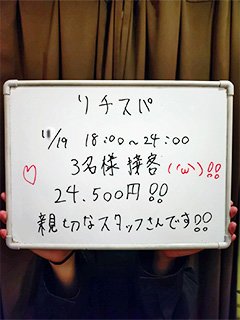 リチスパ
11/19 18:00〜24:00
3名様 接客 ('ω')!!
♡
24.500円!!
親切なスタッフさんです!!